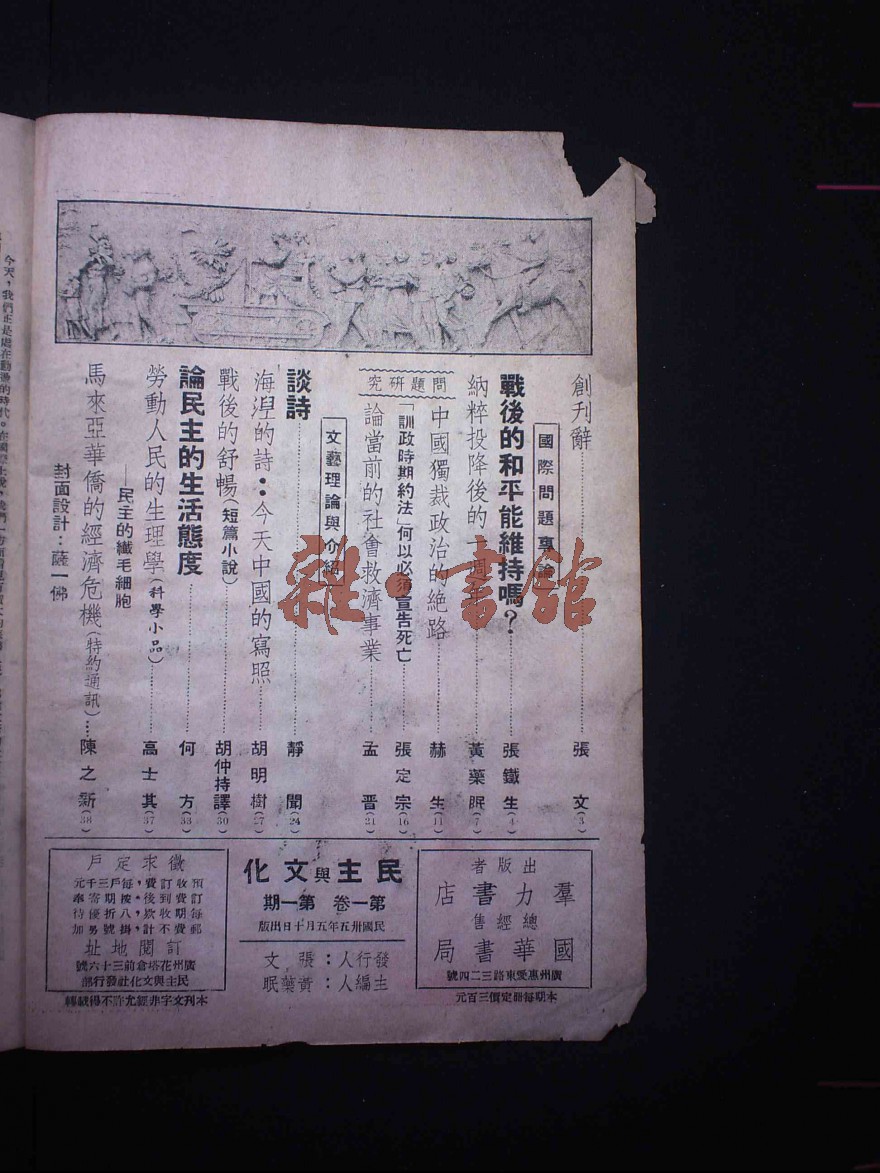 創刊辭……張文(3)
國際問題專論
戰後的和平能維持嗎？……張鐵生(4)
納粹投降後的一週年……黃藥眠(7)
問題研究
中國獨裁政治的絶路……赫生(11)
「訓政時期約法」何以必須宣告死亡……張定宗(16)
論當前的社會救濟事業……孟晋(21)
文藝理論與介紹
談詩……靜聞(24)
海湼的詩：今天中國的寫照……胡明樹(27)
戰後的舒暢(短篇小說)……胡仲持譯(30)
論民主的生活態度……何方(33)
勞動人民的生理學(科學小品)……高士其(37)
——民主的纖毛細胞
馬來亞華僑的經濟危機(特約通訊)…陳之新(38)
封面設計：薩一佛
雜·書館
出版者
羣力書店
總經售
國華書局
廣州惠愛東路三二四號
本期每冊定價三百元
民主與文化
第一卷 第一期
民國卅五年五月十日出版
發行人：張文
主編人：黃藥眠
徵求定戶
預收訂費，每戶三千元
訂費到後，按期寄奉
每期收款，八折優待
郵費不計，掛號另加
訂閱地址
廣州花塔倉前三十六號
民主與文化社發行部
本刊文字非經允許不得轉載
今天，我們正是處在動盪的時代。